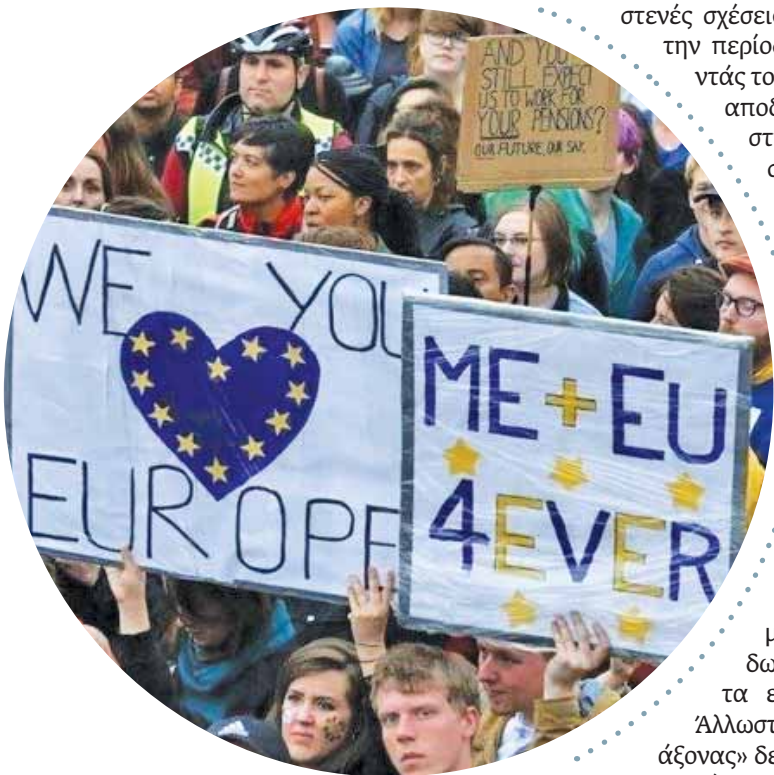 στενές σχέσεις
την περίοδ
ντάς το
αποδ
στ
AND YOU
STILL EXPECT
US TO WORK FOR
YOUR PENSIONS?
OUR FUTURE, OUR SAY.
WE YOU
EUROPE
ME + EU
4EVER
μ
δω
τα ε
Άλλωστ
άξονας» δε